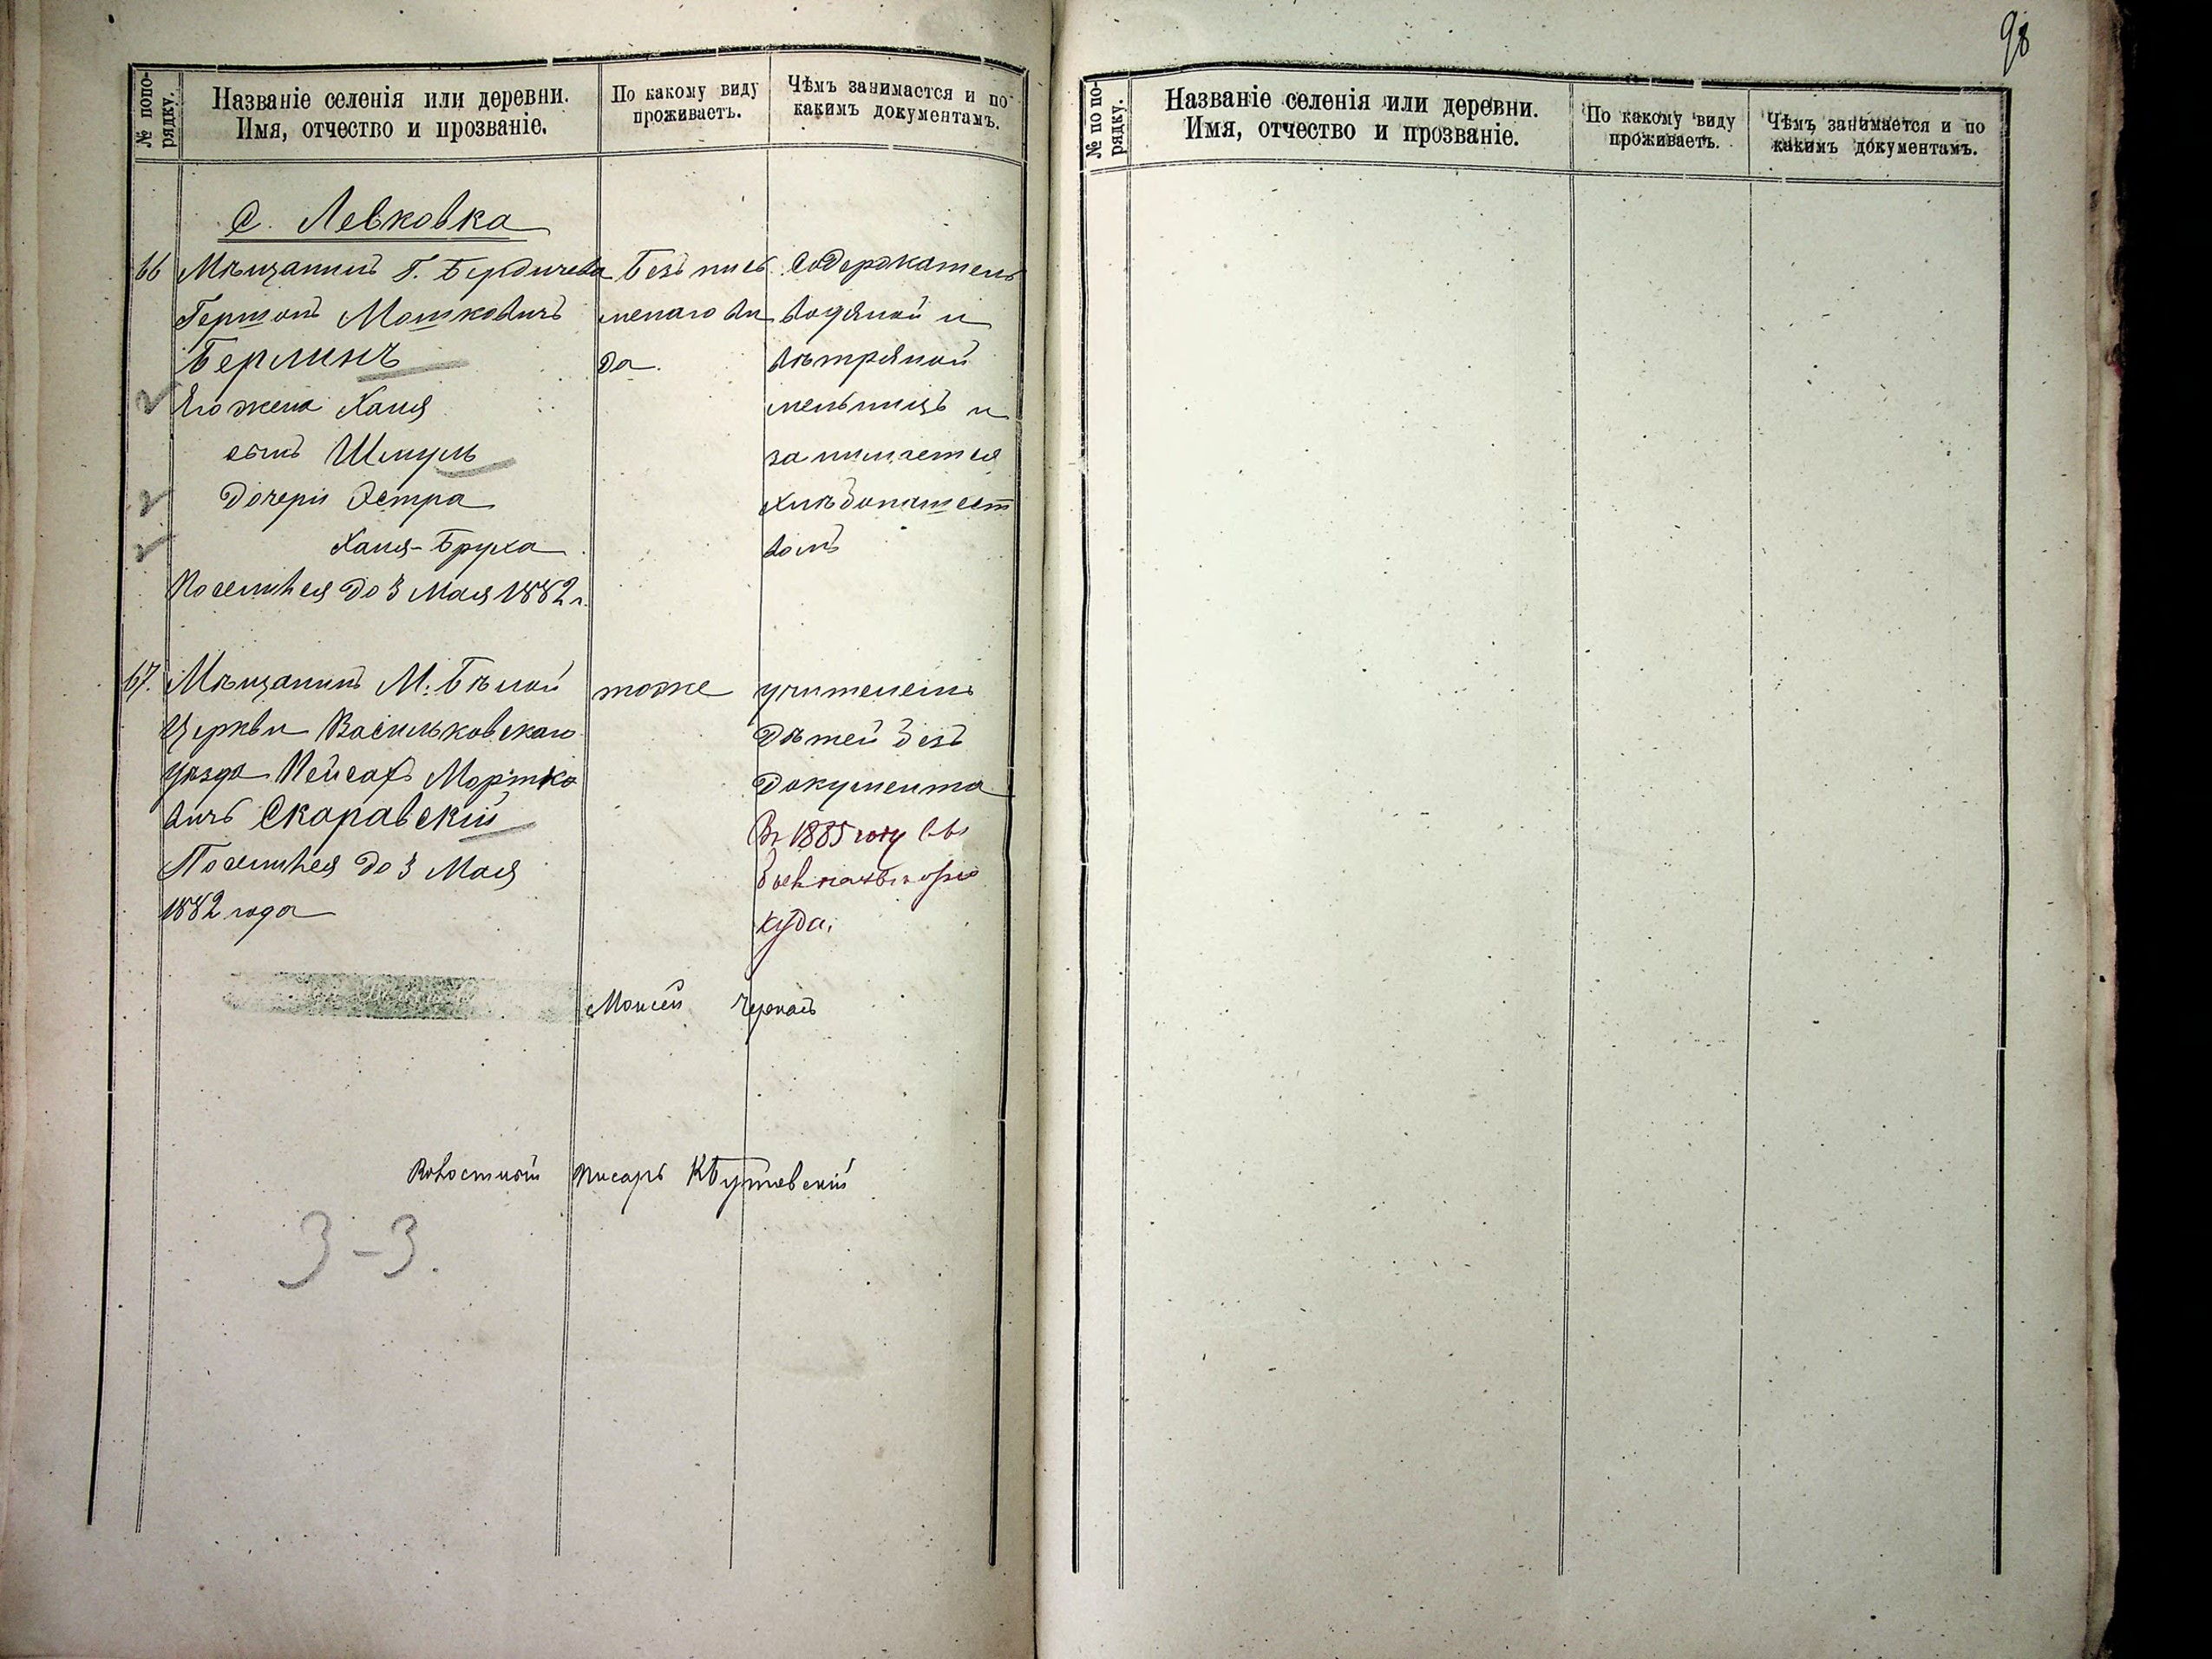 98
№ по по-
рядку.
Названіе селенія или деревни.
Имя, отчество и прозваніе.
По какому виду
проживаетъ.
Чѣмъ занимается и по
какимъ документамъ.
С. Левковка
66 Мѣщанинъ Г. Бердичева Безъ пись Содержатель
Гершонъ Мошковичъ меннаго ви водяной и
Берлинъ да вѣтряной
Его жена Хаия мельницъ и
сынъ Шмуль занимается
дочери Эстра хлѣбопашест
Хаия-Бруха вомъ
Поселился до 3 Мая 1882 г.
67. Мѣщанинъ М. Бѣлой тоже учителемъ
Церкви Васильковскаго дѣтей безъ
уѣзда Пейсахъ Мортко документа
вичъ Скаравскій Въ 1885 году
Поселился до 3 Мая
1882 года куда.
Моисей
Волостной Писарь
3-3.
№ по по-
рядку.
Названіе селенія или деревни.
Имя, отчество и прозваніе.
По какому виду
проживаетъ.
Чѣмъ занимается и по
какимъ документамъ.